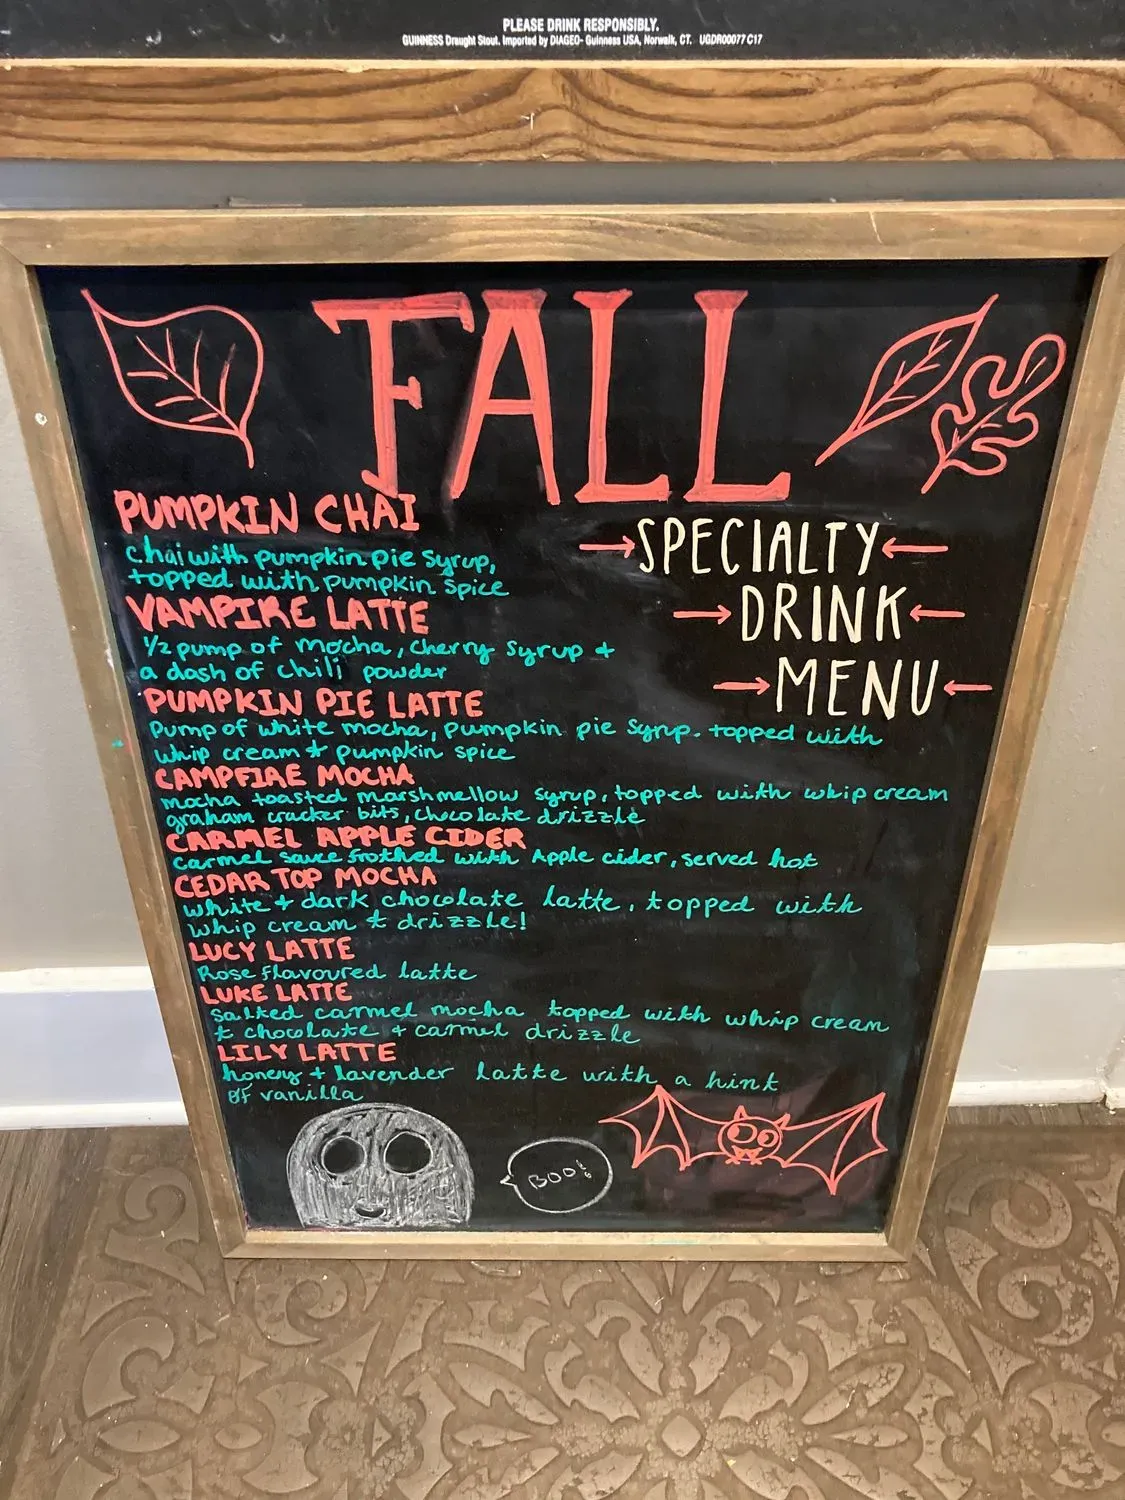 PLEASE DRINK RESPONSIBLY.
GUINNESS Draught Stout. Imported by DIAGEO- Guinness USA, Norwalk, CT. UGDR00077 C17
FALL
SPECIALTY
DRINK
MENU
PUMPKIN CHAI
chai with pumpkin pie syrup,
topped with pumpkin spice
VAMPIRE LATTE
1/2 pump of mocha, cherry syrup +
a dash of chili powder
PUMPKIN PIE LATTE
Pump of white mocha, pumpkin pie syrup. topped with
whip cream + pumpkin spice
CAMPFIRE MOCHA
mocha toasted marshmellow syrup, topped with whip cream
graham cracker bits, chocolate drizzle
CARMEL APPLE CIDER
carmel sauce frothed with Apple cider, served hot
CEDAR TOP MOCHA
white + dark chocolate latte, topped with
whip cream + drizzle!
LUCY LATTE
Rose flavoured latte
LUKE LATTE
salted carmel mocha topped with whip cream
+ chocolate + carmel drizzle
LILY LATTE
honey + lavender latte with a hint
of vanilla
BOO!